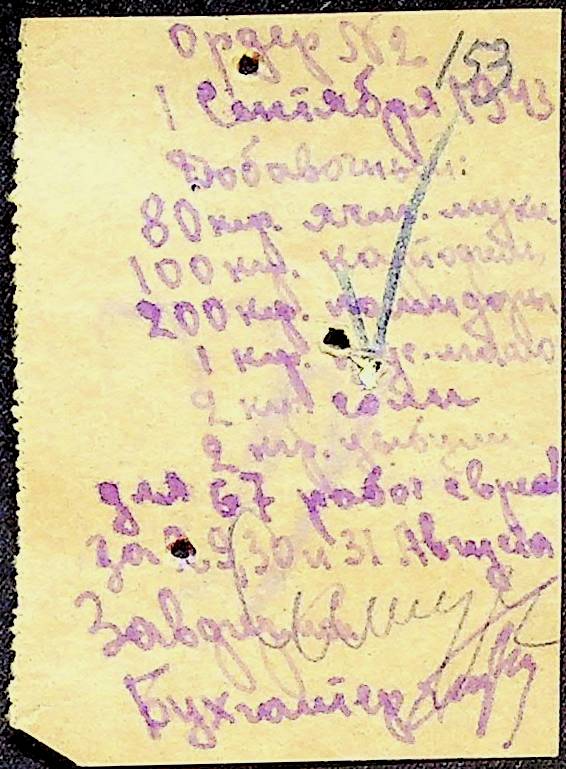 Ордер №2 153
1 Сентября 1943
Добавочный:
80 кгр. ячм. муки
100 кгр. картофель
200 кгр. помидоры
1 кгр. масло
2 кгр. соли
2 кгр.
для 67 рабоч евреев
за 29, 30 и 31 Августа
Бухгалтер